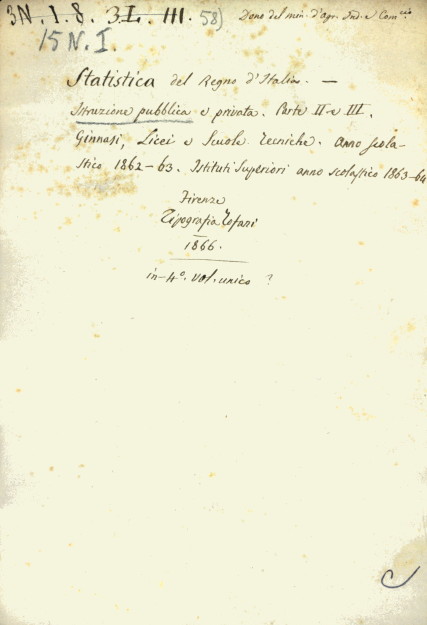 3N. 1. 8. 3I. III. 58) Dono del min. d'agr. Ind. e Com.cio
15 N. I.
Statistica del Regno d'Italia. —
Istruzione pubblica e privata. Parte II e III.
Ginnasi, Licei e Scuole Tecniche. Anno scola-
stico 1862-63. Istituti Superiori anno scolastico 1863-64
Firenze
Tipografia Tofani
1866.
in-4°. vol. unico ?